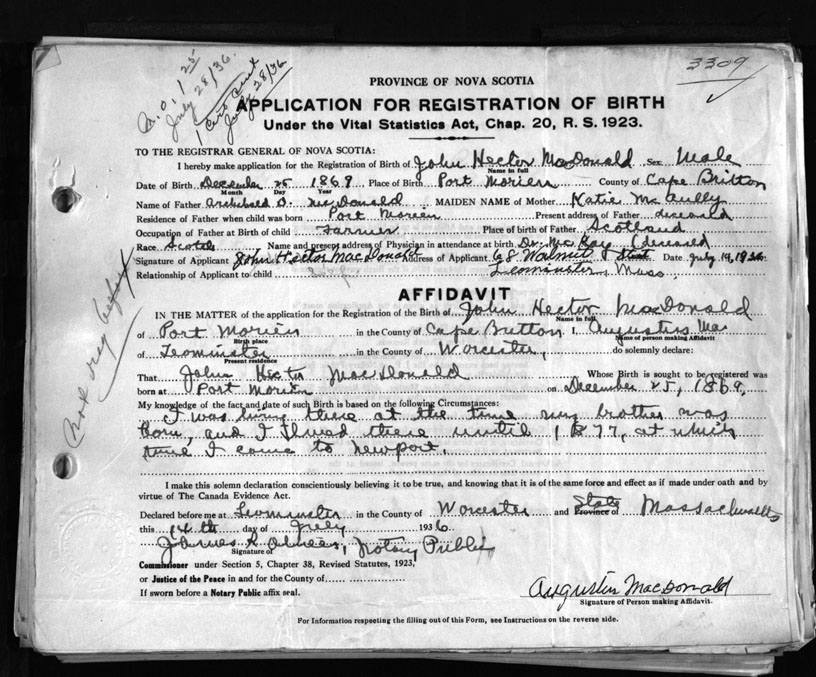 M.O. 1.25
July 28/36.
1 Cert Sent
July 28/36
3309
PROVINCE OF NOVA SCOTIA
APPLICATION FOR REGISTRATION OF BIRTH
Under the Vital Statistics Act, Chap. 20, R. S. 1923.
TO THE REGISTRAR GENERAL OF NOVA SCOTIA:
I hereby make application for the Registration of Birth of John Hector MacDonald Sex Male
Name in full
Date of Birth December 25 1869 Place of Birth Port Morien County of Cape Britton
Month Day Year
Name of Father Archibald D. MacDonald MAIDEN NAME of Mother Katie McAully
Residence of Father when child was born Port Morien Present address of Father deceased
Occupation of Father at Birth of child Farmer Place of birth of Father Scotland
Race Scotch Name and present address of Physician in attendance at birth Dr. McKay (deceased
Signature of Applicant John Hector MacDonald Address of Applicant 68 Walnut Street Date July 14, 1936
Relationship of Applicant to child self Leominster, Mass
Not reg before
AFFIDAVIT
IN THE MATTER of the application for the Registration of the Birth of John Hector MacDonald
Name in full
of Port Morien in the County of Cape Britton I, Augustus Mac
Birth place Name of person making Affidavit
of Leominster in the County of Worcester, do solemnly declare:
Present residence
That John Hector MacDonald Whose Birth is sought to be registered was
born at Port Morien on December 25, 1869,
My knowledge of the fact and date of such Birth is based on the following Circumstances:
I was living there at the time my brother was
born, and I lived there until 1877, at which
time I came to Newport.
I make this solemn declaration conscientiously believing it to be true, and knowing that it is of the same force and effect as if made under oath and by
virtue of The Canada Evidence Act.
Declared before me at Leominster in the County of Worcester and State Province of Massachusetts
this 14th day of July 1936
James R. Notary Public
Signature of
Commissioner under Section 5, Chapter 38, Revised Statutes, 1923,
or Justice of the Peace in and for the County of
If sworn before a Notary Public affix seal.
Augustus MacDonald
Signature of Person making Affidavit.
For Information respecting the filling out of this Form, see Instructions on the reverse side.